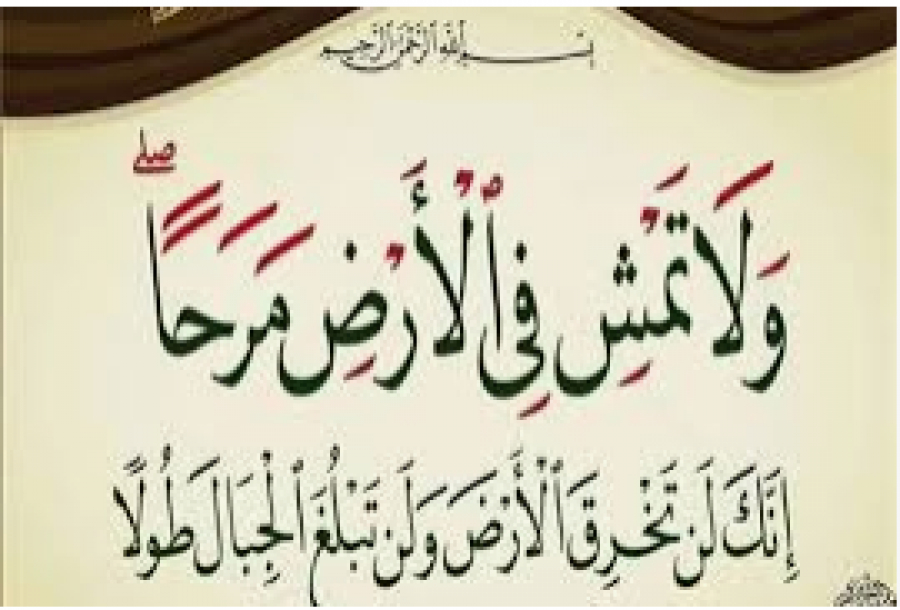 بسم الله الرحمن الرحيم
وَلَا تَمْشِ فِي ٱلْأَرْضِ مَرَحًاۖ
إِنَّكَ لَن تَخْرِقَ ٱلْأَرْضَ وَلَن تَبْلُغَ ٱلْجِبَالَ طُولًا